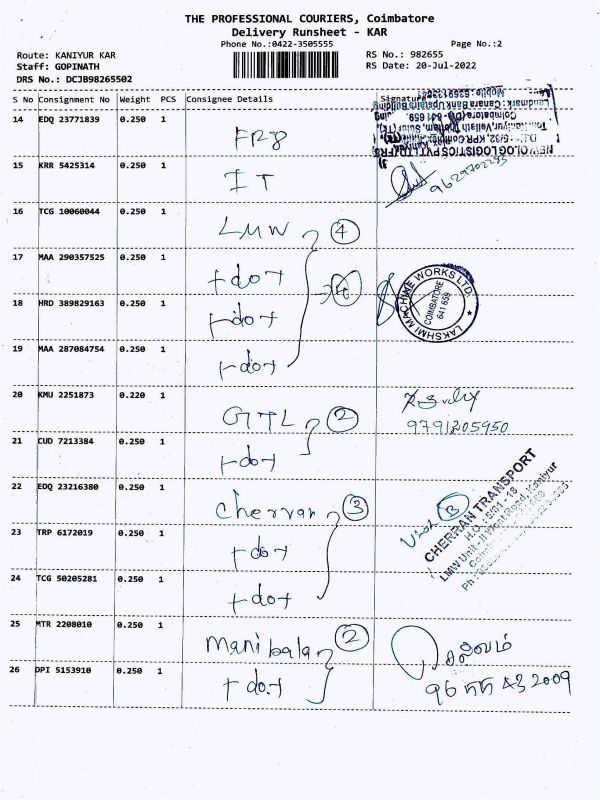 THE PROFESSIONAL COURIERS, Coimbatore
Delivery Runsheet - KAR
Phone No.:0422-3505555 Page No.:2
Route: KANIYUR KAR RS No.: 982655
Staff: GOPINATH RS Date: 20-Jul-2022
DRS No.: DCJB98265502
S No Consignment No Weight PCS Consignee Details Signature
14 EDQ 23771839 0.250 1
15 KRR 5425314 0.250 1 IT
16 TCG 10060044 0.250 1 LMW 4
17 MAA 290357525 0.250 1 +do+
18 HRD 389829163 0.250 1 +do+
LAKSHMI MACHINE WORKS LTD.
COIMBATORE
641 659
19 MAA 287084754 0.250 1 +do+
20 KMU 2251873 0.220 1 GTL 2
9791205950
21 CUD 7213384 0.250 1 +do+
22 EDQ 23216380 0.250 1 Cherran 3
CHERRAN TRANSPORT
H.O. : 5/01 - 18
LMW Unit - II West Road, Kaniyur
23 TRP 6172019 0.250 1 +do+
24 TCG 50205281 0.250 1 +do+
25 MTR 2208010 0.250 1 Manibala 2
செல்வம்
26 DPI 5153910 0.250 1 +do+